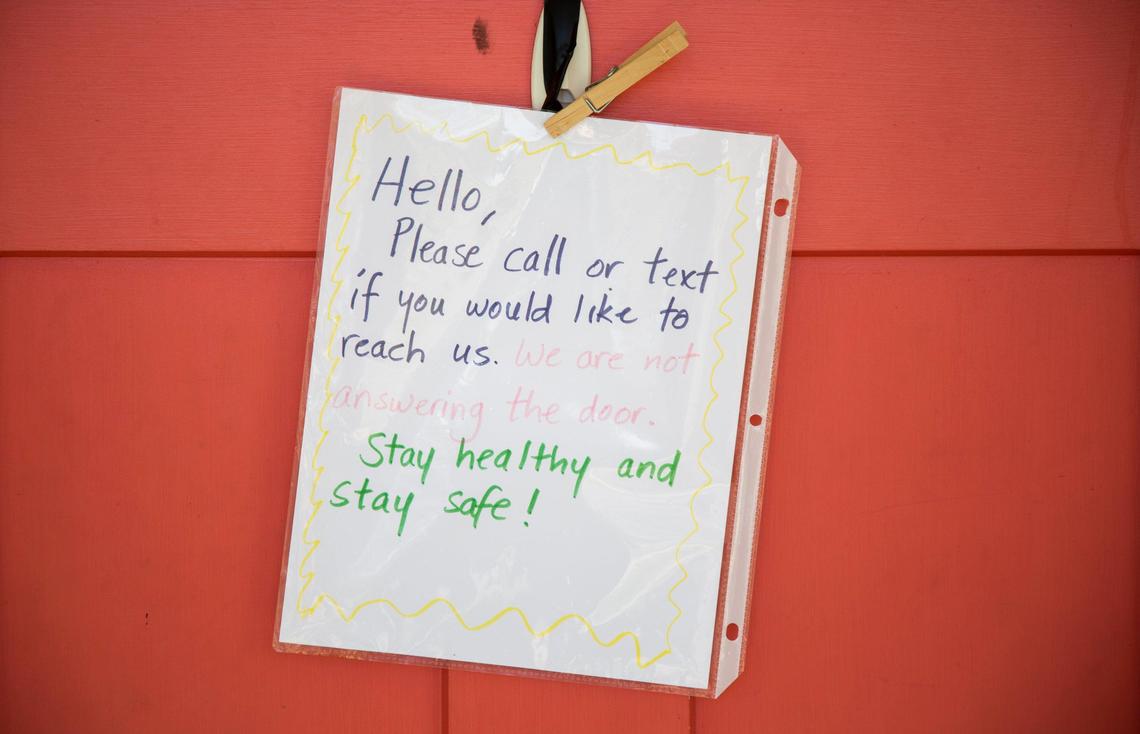 Hello,
Please call or text
if you would like to
reach us. We are not
answering the door.
Stay healthy and
stay safe!